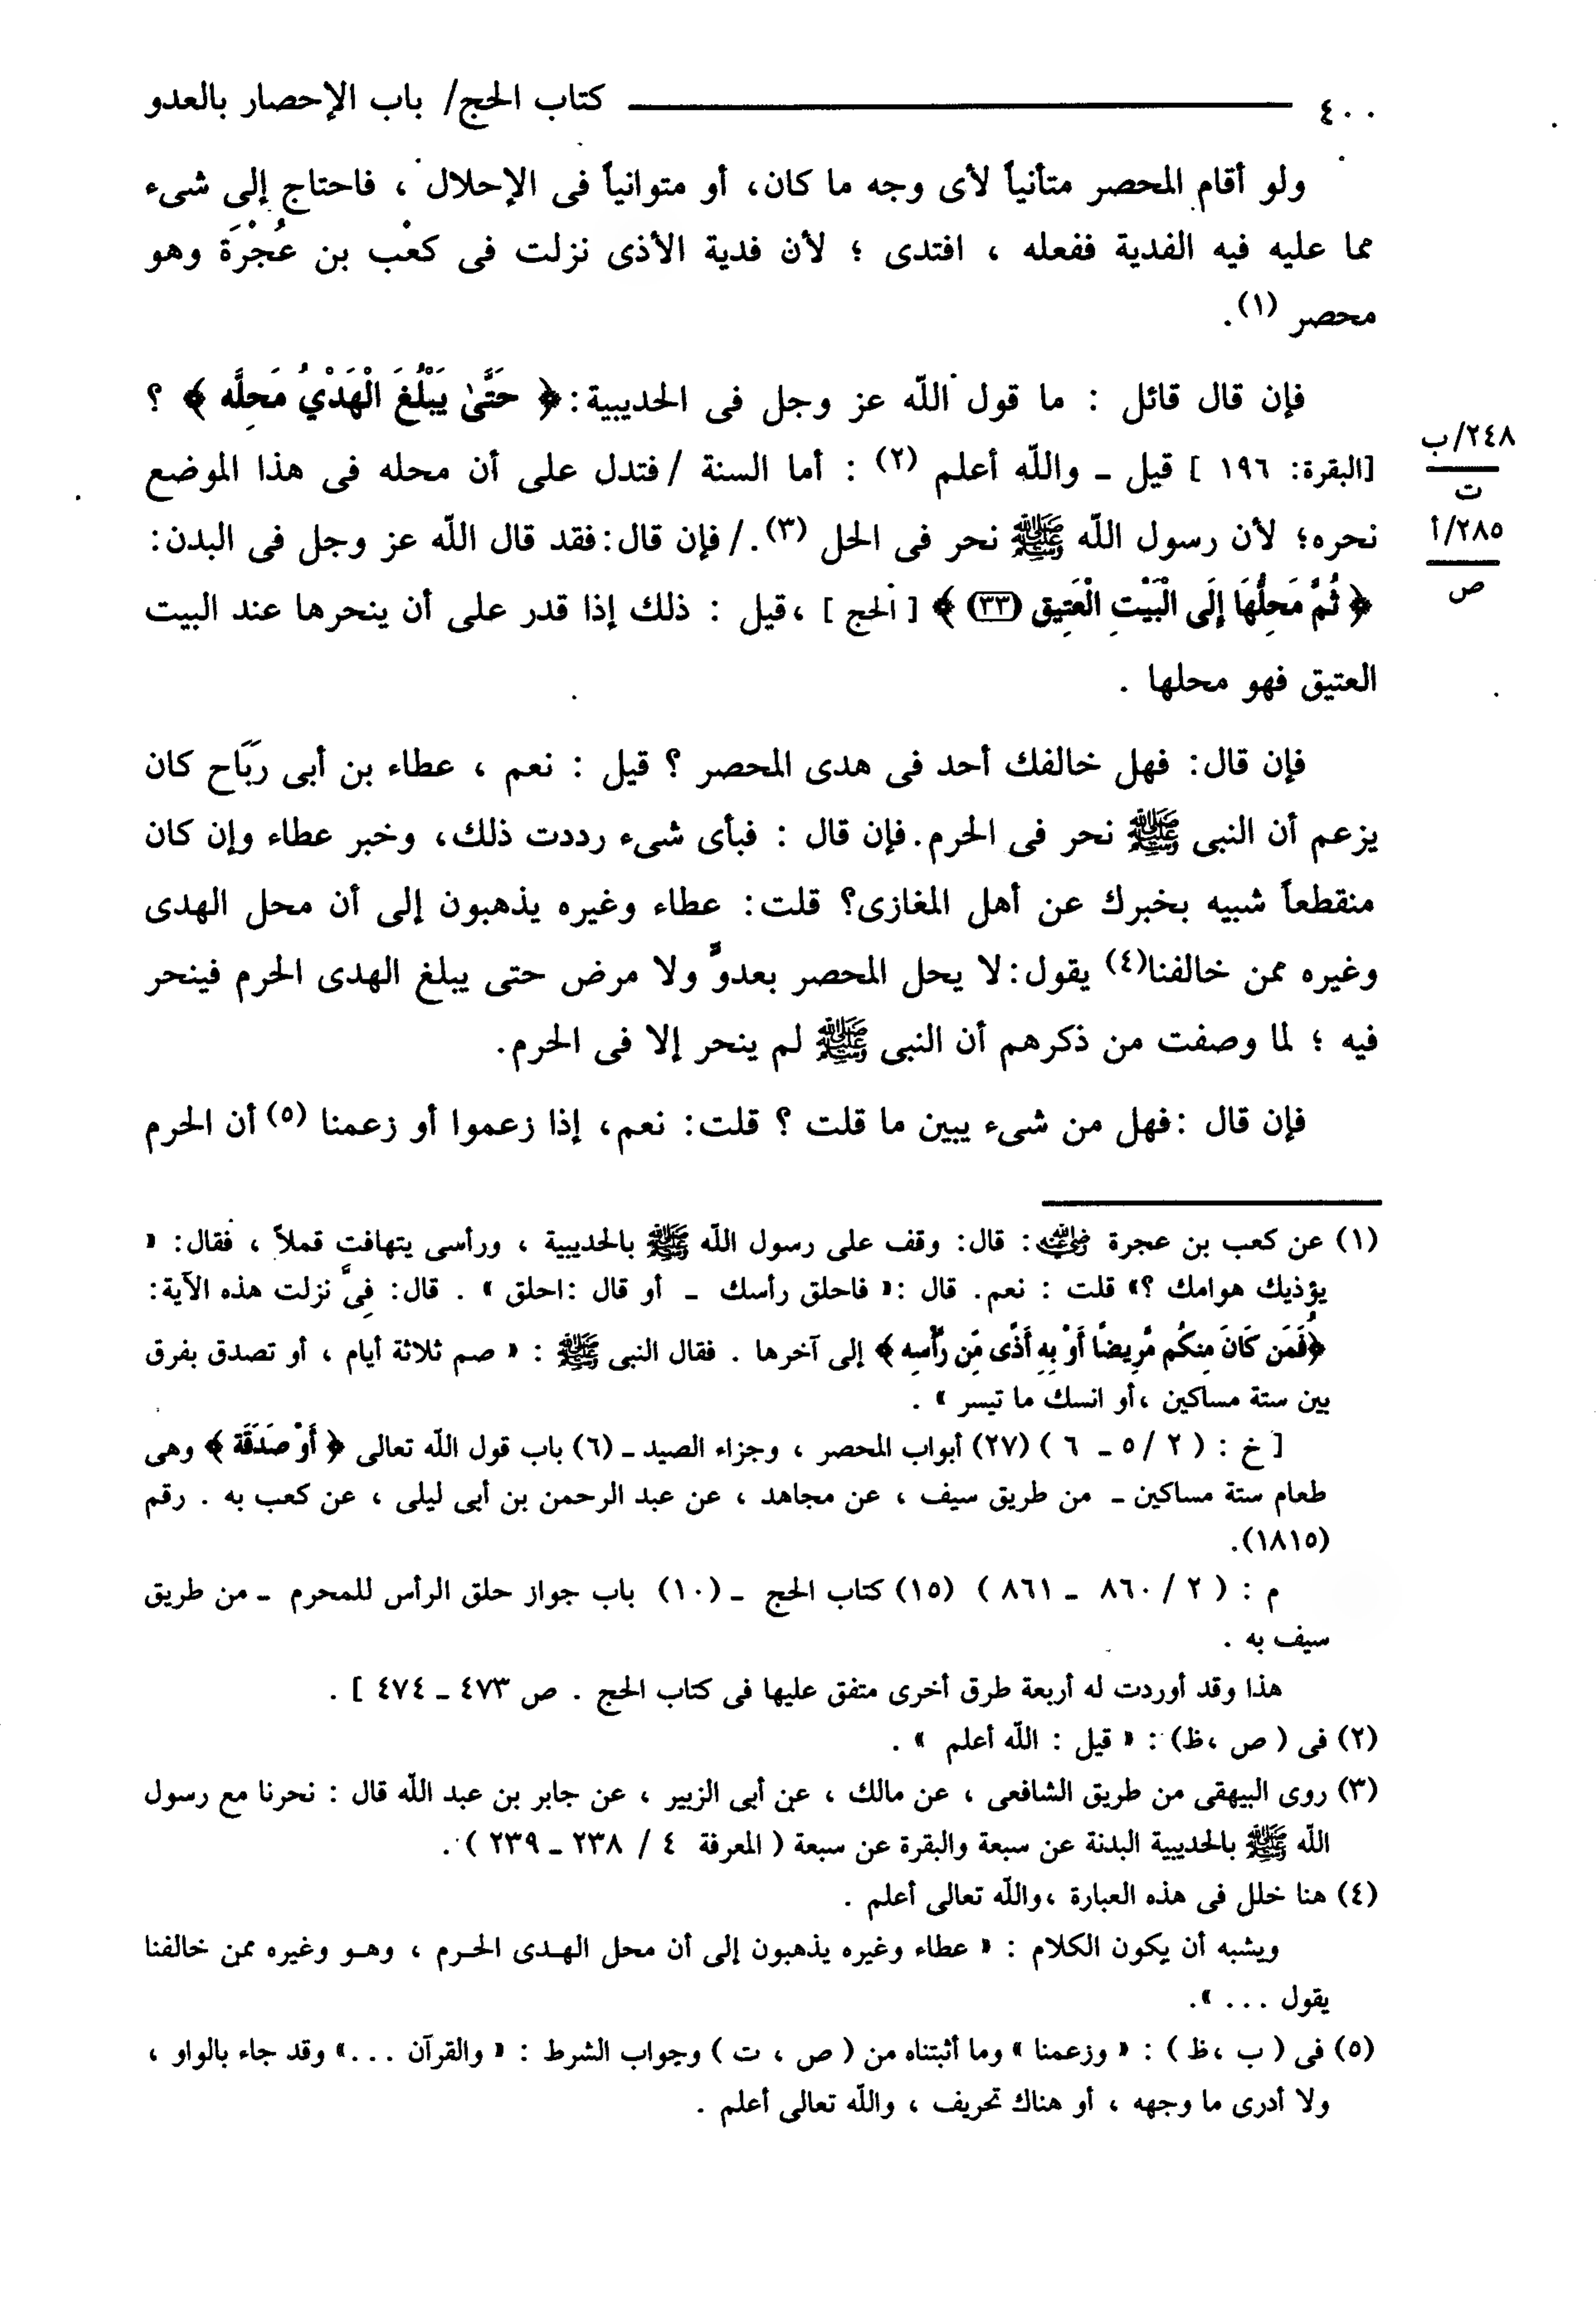 ٤٠٠ ــــــ كتاب الحج/ باب الإحصار بالعدو
ولو أقام المحصر متأنياً لأى وجه ما كان، أو متوانياً فى الإحلال ، فاحتاج إلى شىء
مما عليه فيه الفدية ففعله ، افتدى ؛ لأن فدية الأذى نزلت فى كعْب بن عُجْرَة وهو
محصر (١).
فإن قال قائل : ما قول اللّه عز وجل فى الحديبية: ﴿ حَتَّىٰ يَبْلُغَ الْهَدْيُ مَحِلَّه ﴾ ؟
[البقرة: ١٩٦ ] قيل ـ واللّه أعلم (٢) : أما السنة /فتدل على أن محله فى هذا الموضع
٢٤٨/ب
ت
نحره؛ لأن رسول اللّه ﷺ نحر فى الحل (٣)./ فإن قال: فقد قال اللّه عز وجل فى البدن:
٢٨٥/أ
ص
﴿ ثُمَّ مَحِلُّهَا إِلَى الْبَيْتِ الْعَتِيقِ (٣٣) ﴾ [ الحج ] ،قيل : ذلك إذا قدر على أن ينحرها عند البيت
العتيق فهو محلها .
فإن قال: فهل خالفك أحد فى هدى المحصر ؟ قيل : نعم ، عطاء بن أبى ربَاح كان
يزعم أن النبى ﷺ نحر فى الحرم. فإن قال : فبأى شىء رددت ذلك، وخبر عطاء وإن كان
منقطعاً شبيه بخبرك عن أهل المغازى؟ قلت: عطاء وغيره يذهبون إلى أن محل الهدى
وغيره ممن خالفنا(٤) يقول: لا يحل المحصر بعدوٍّ ولا مرض حتى يبلغ الهدى الحرم فينحر
فيه ؛ لما وصفت من ذكرهم أن النبى ﷺ لم ينحر إلا فى الحرم.
فإن قال :فهل من شىء يبين ما قلت ؟ قلت: نعم، إذا زعموا أو زعمنا (٥) أن الحرم
(١) عن كعب بن عجرة رضي الله عنه : قال: وقف على رسول اللّه ﷺ بالحديبية ، ورأسى يتهافت قملاً ، فقال: «
يؤذيك هوامك ؟» قلت : نعم. قال :« فاحلق رأسك ـ أو قال :احلق » . قال: فِىَّ نزلت هذه الآية:
﴿فَمَن كَانَ مِنكُم مَّرِيضًا أَوْ بِهِ أَذًى مِّن رَّأْسِهِ ﴾ إلى آخرها . فقال النبى ﷺ : « صم ثلاثة أيام ، أو تصدق بفرق
بين ستة مساكين ،أو انسك ما تيسر » .
[ خ : ( ٢ /٥ ـ ٦ ) (٢٧) أبواب المحصر ، وجزاء الصيد ـ (٦) باب قول اللّه تعالى ﴿ أَوْ صَدَقَة ﴾ وهى
طعام ستة مساكين ـ من طريق سيف ، عن مجاهد ، عن عبد الرحمن بن أبى ليلى ، عن كعب به . رقم
(١٨١٥).
م : ( ٢ / ٨٦٠ ـ ٨٦١ ) (١٥) كتاب الحج ـ (١٠) باب جواز حلق الرأس للمحرم ـ من طريق
سيف به .
هذا وقد أوردت له أربعة طرق أخرى متفق عليها فى كتاب الحج . ص ٤٧٣ ـ ٤٧٤ ] .
(٢) فى ( ص ،ظ) : « قيل : اللّه أعلم » .
(٣) روى البيهقى من طريق الشافعى ، عن مالك ، عن أبى الزبير ، عن جابر بن عبد اللّه قال : نحرنا مع رسول
اللّه ﷺ بالحديبية البدنة عن سبعة والبقرة عن سبعة ( المعرفة ٤ / ٢٣٨ ـ ٢٣٩ ) .
(٤) هنا خلل فى هذه العبارة ،واللّه تعالى أعلم .
ويشبه أن يكون الكلام : « عطاء وغيره يذهبون إلى أن محل الهـدى الحـرم ، وهـو وغيره ممن خالفنا
يقول ... ».
(٥) فى ( ب ،ظ ) : « وزعمنا » وما أثبتناه من ( ص ، ت ) وجواب الشرط : « والقرآن ...» وقد جاء بالواو ،
ولا أدرى ما وجهه ، أو هناك تحريف ، واللّه تعالى أعلم .